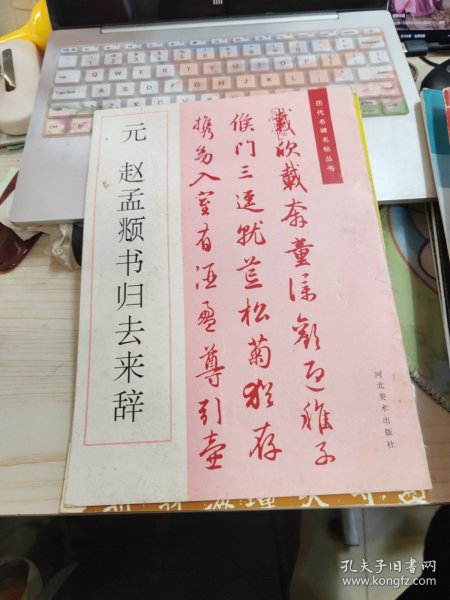 历代名碑名帖丛书
載欣載奔童僕歡迎稚子
候門三逕就荒松菊猶存
携幼入室有酒盈尊引壺
河北美术出版社
元 赵孟𫖯书归去来辞
孔夫子旧书网
www.kongfz.com